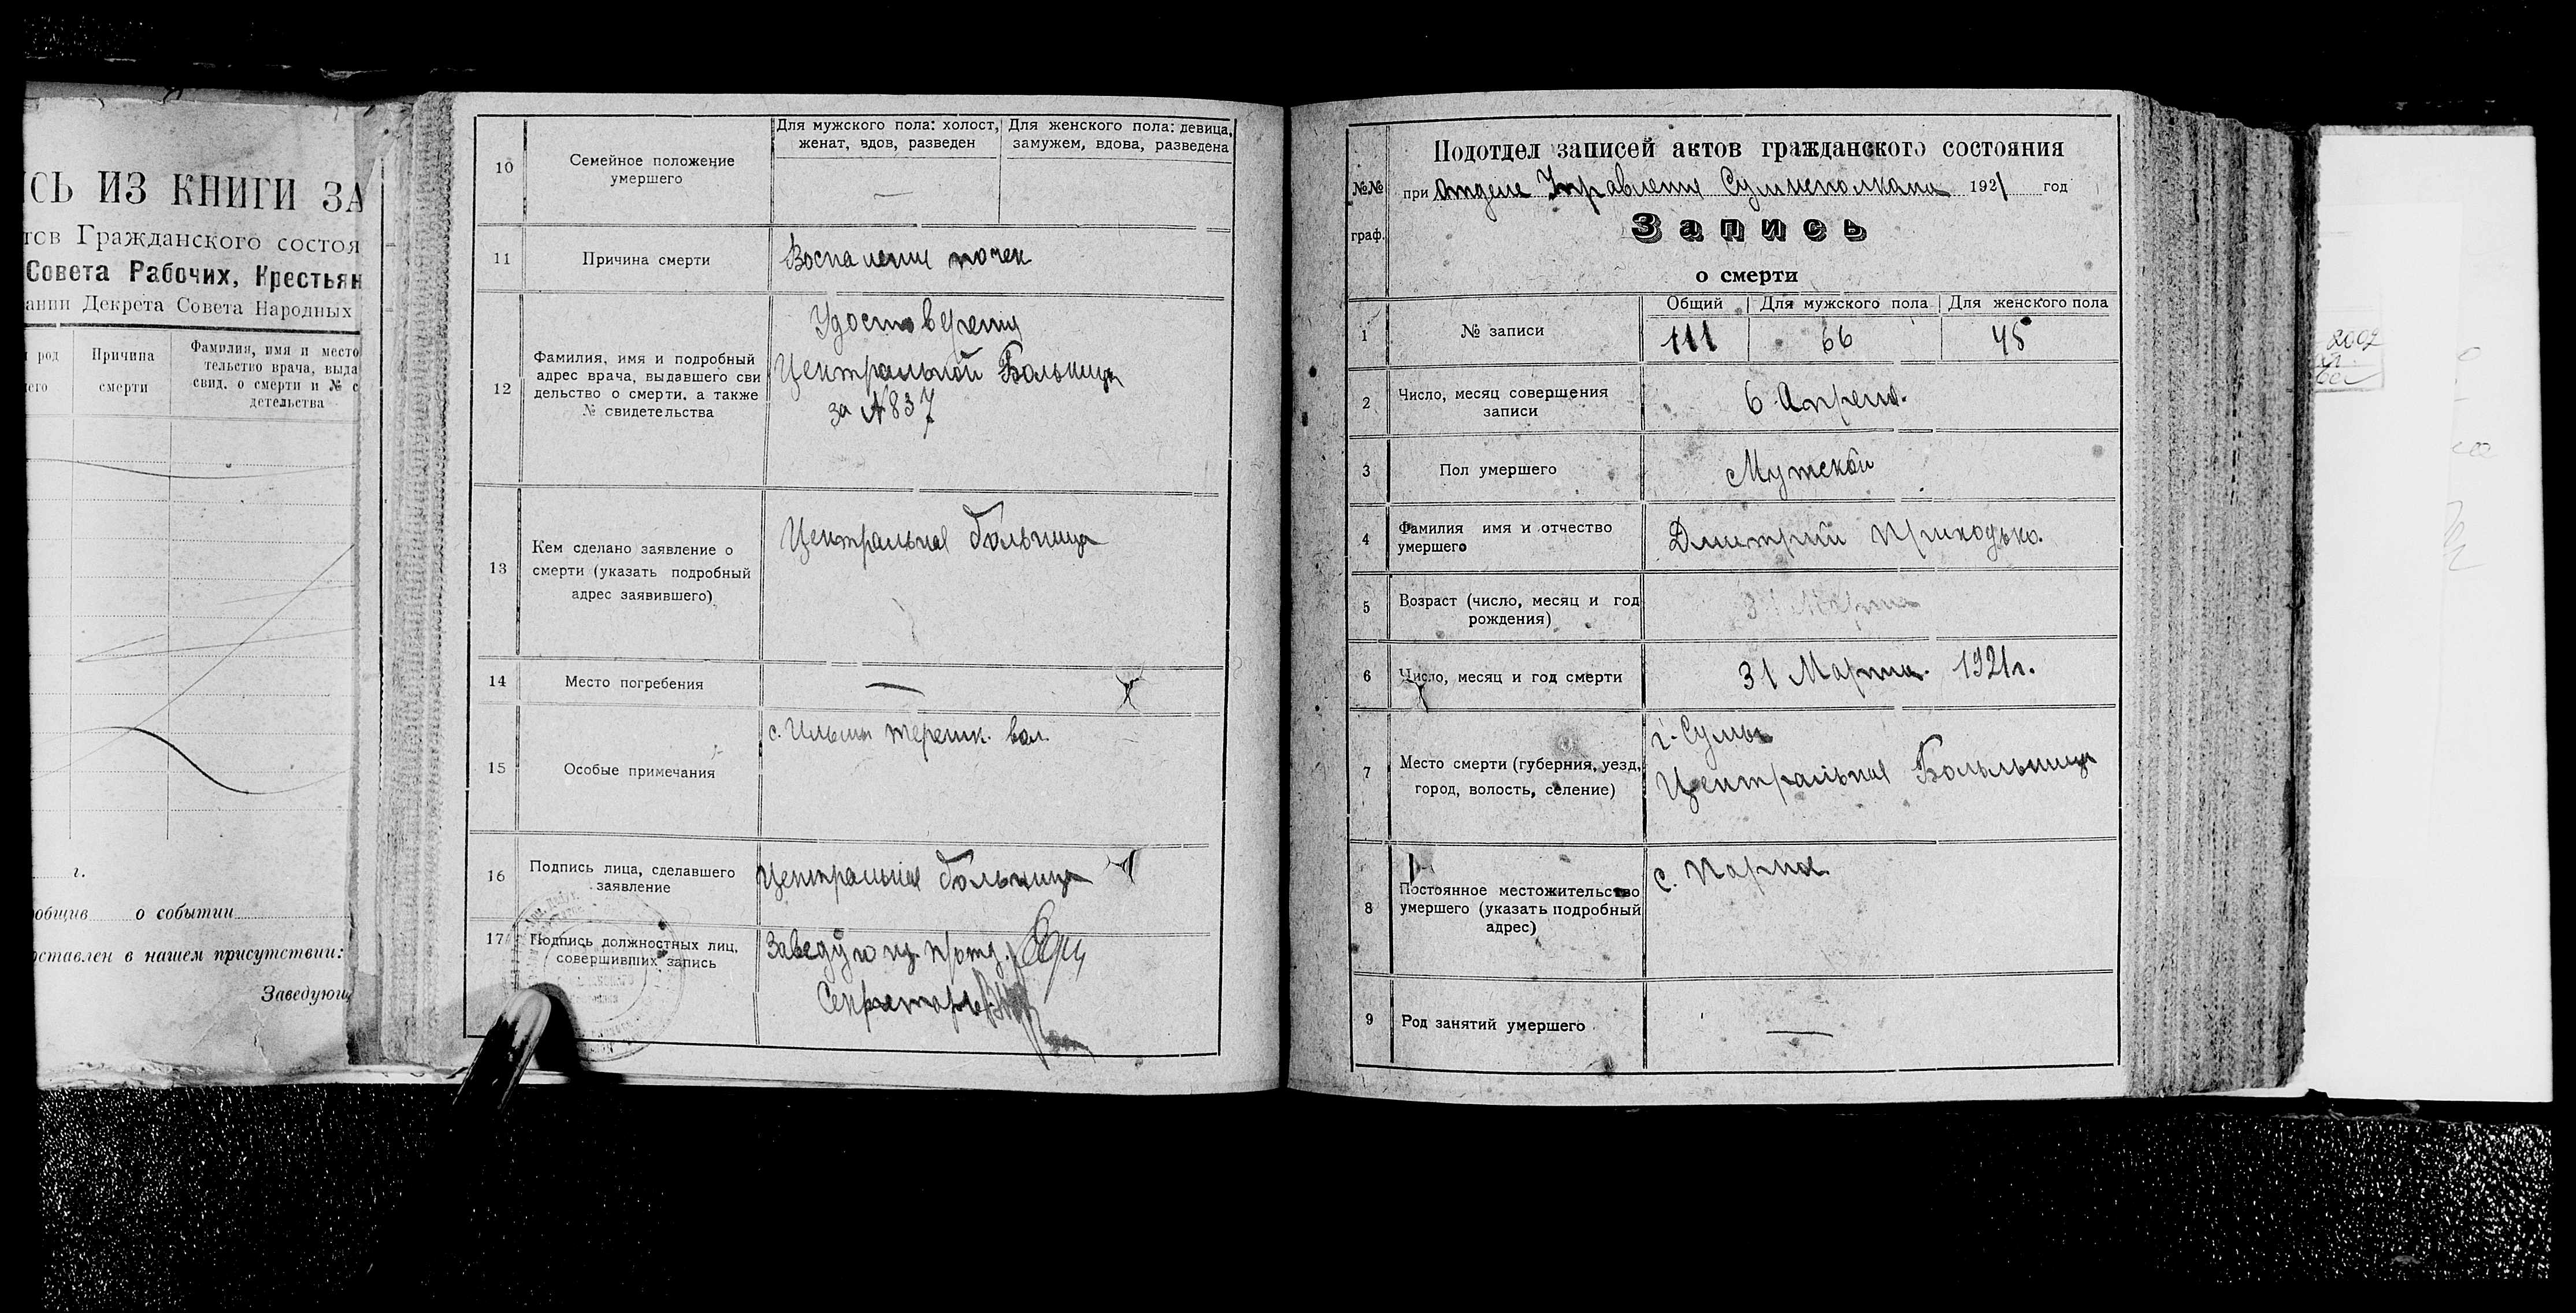 СЬ ИЗ КНИГИ ЗА
тов Гражданского состоя
Совета Рабочих, Крестьян
ании Декрета Совета Народных
род
его
Причина
смерти
Фамилия, имя и место
тельство врача, выда
свид. о смерти и № с
детельства
г.
общив о событии
оставлен в нашем присутствии:
Заведующ
10
Семейное положение
умершего
Для мужского пола: холост,
женат, вдов, разведен
Для женского пола: девица,
замужем, вдова, разведена
—
11
Причина смерти
Воспаление почек
12
Фамилия, имя и подробный
адрес врача, выдавшего сви
дельство о смерти, а также
№ свидетельства
Удостоверения
Центральной Больницы
за № 837
13
Кем сделано заявление о
смерти (указать подробный
адрес заявившего)
Центральная больница
14
Место погребения
—
15
Особые примечания
с. Ильма терешк. вол.
16
Подпись лица, сделавшего
заявление
Центральная больница
17
Подпись должностных лиц,
совершивших запись
Заведующ.
Секретарь
№№
граф.
Подотдел записей актов гражданского состояния
при Отделе Управления Сумисполкома 1921 год
Запись
о смерти
1
№ записи
Общий
Для мужского пола
Для женского пола
111
66
45
2
Число, месяц совершения
записи
6 Апреля.
3
Пол умершего
Мужской
4
Фамилия имя и отчество
умершего
Дмитрий Приходько.
5
Возраст (число, месяц и год
рождения)
31 Марта
6
Число, месяц и год смерти
31 Марта. 1921 г.
7
Место смерти (губерния, уезд,
город, волость, селение)
г. Сумы
Центральная Больльница
8
Постоянное местожительство
умершего (указать подробный
адрес)
с.
9
Род занятий умершего
—
2002